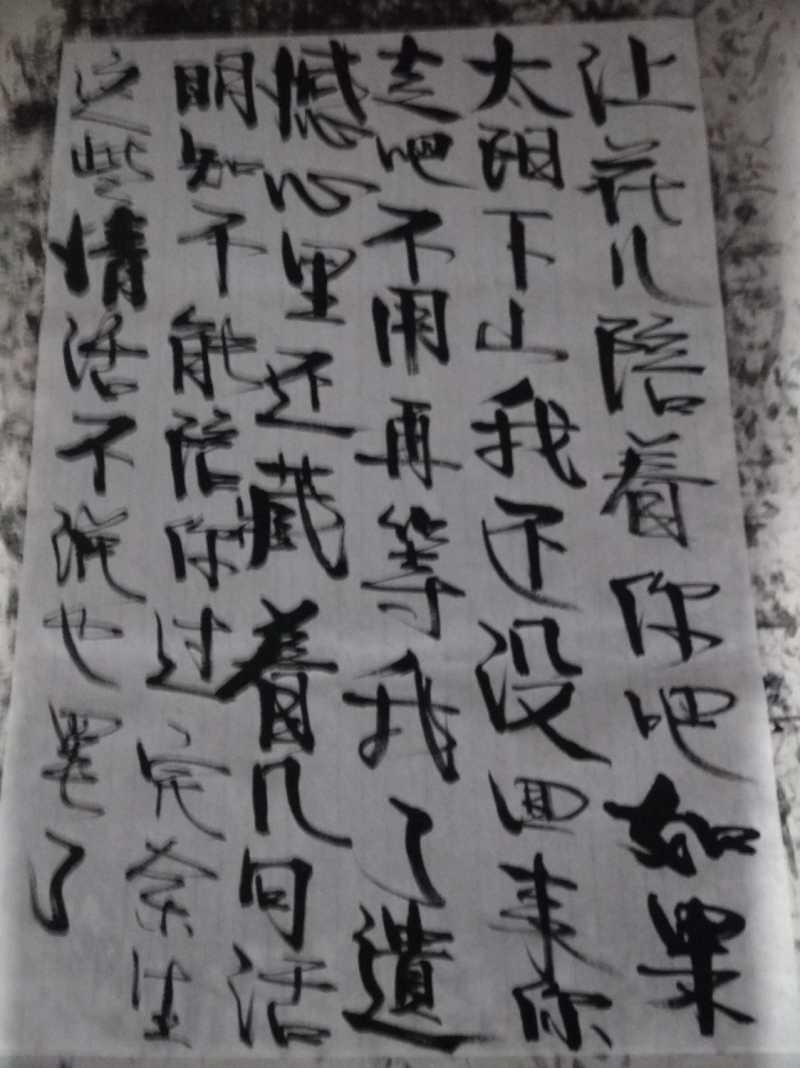 让花儿陪着你吧如果
太阳下山我还没回来你
走吧不用再等我了遗
憾心里还藏着几句话
明知不能陪你过完余生
这些情话不说也罢了